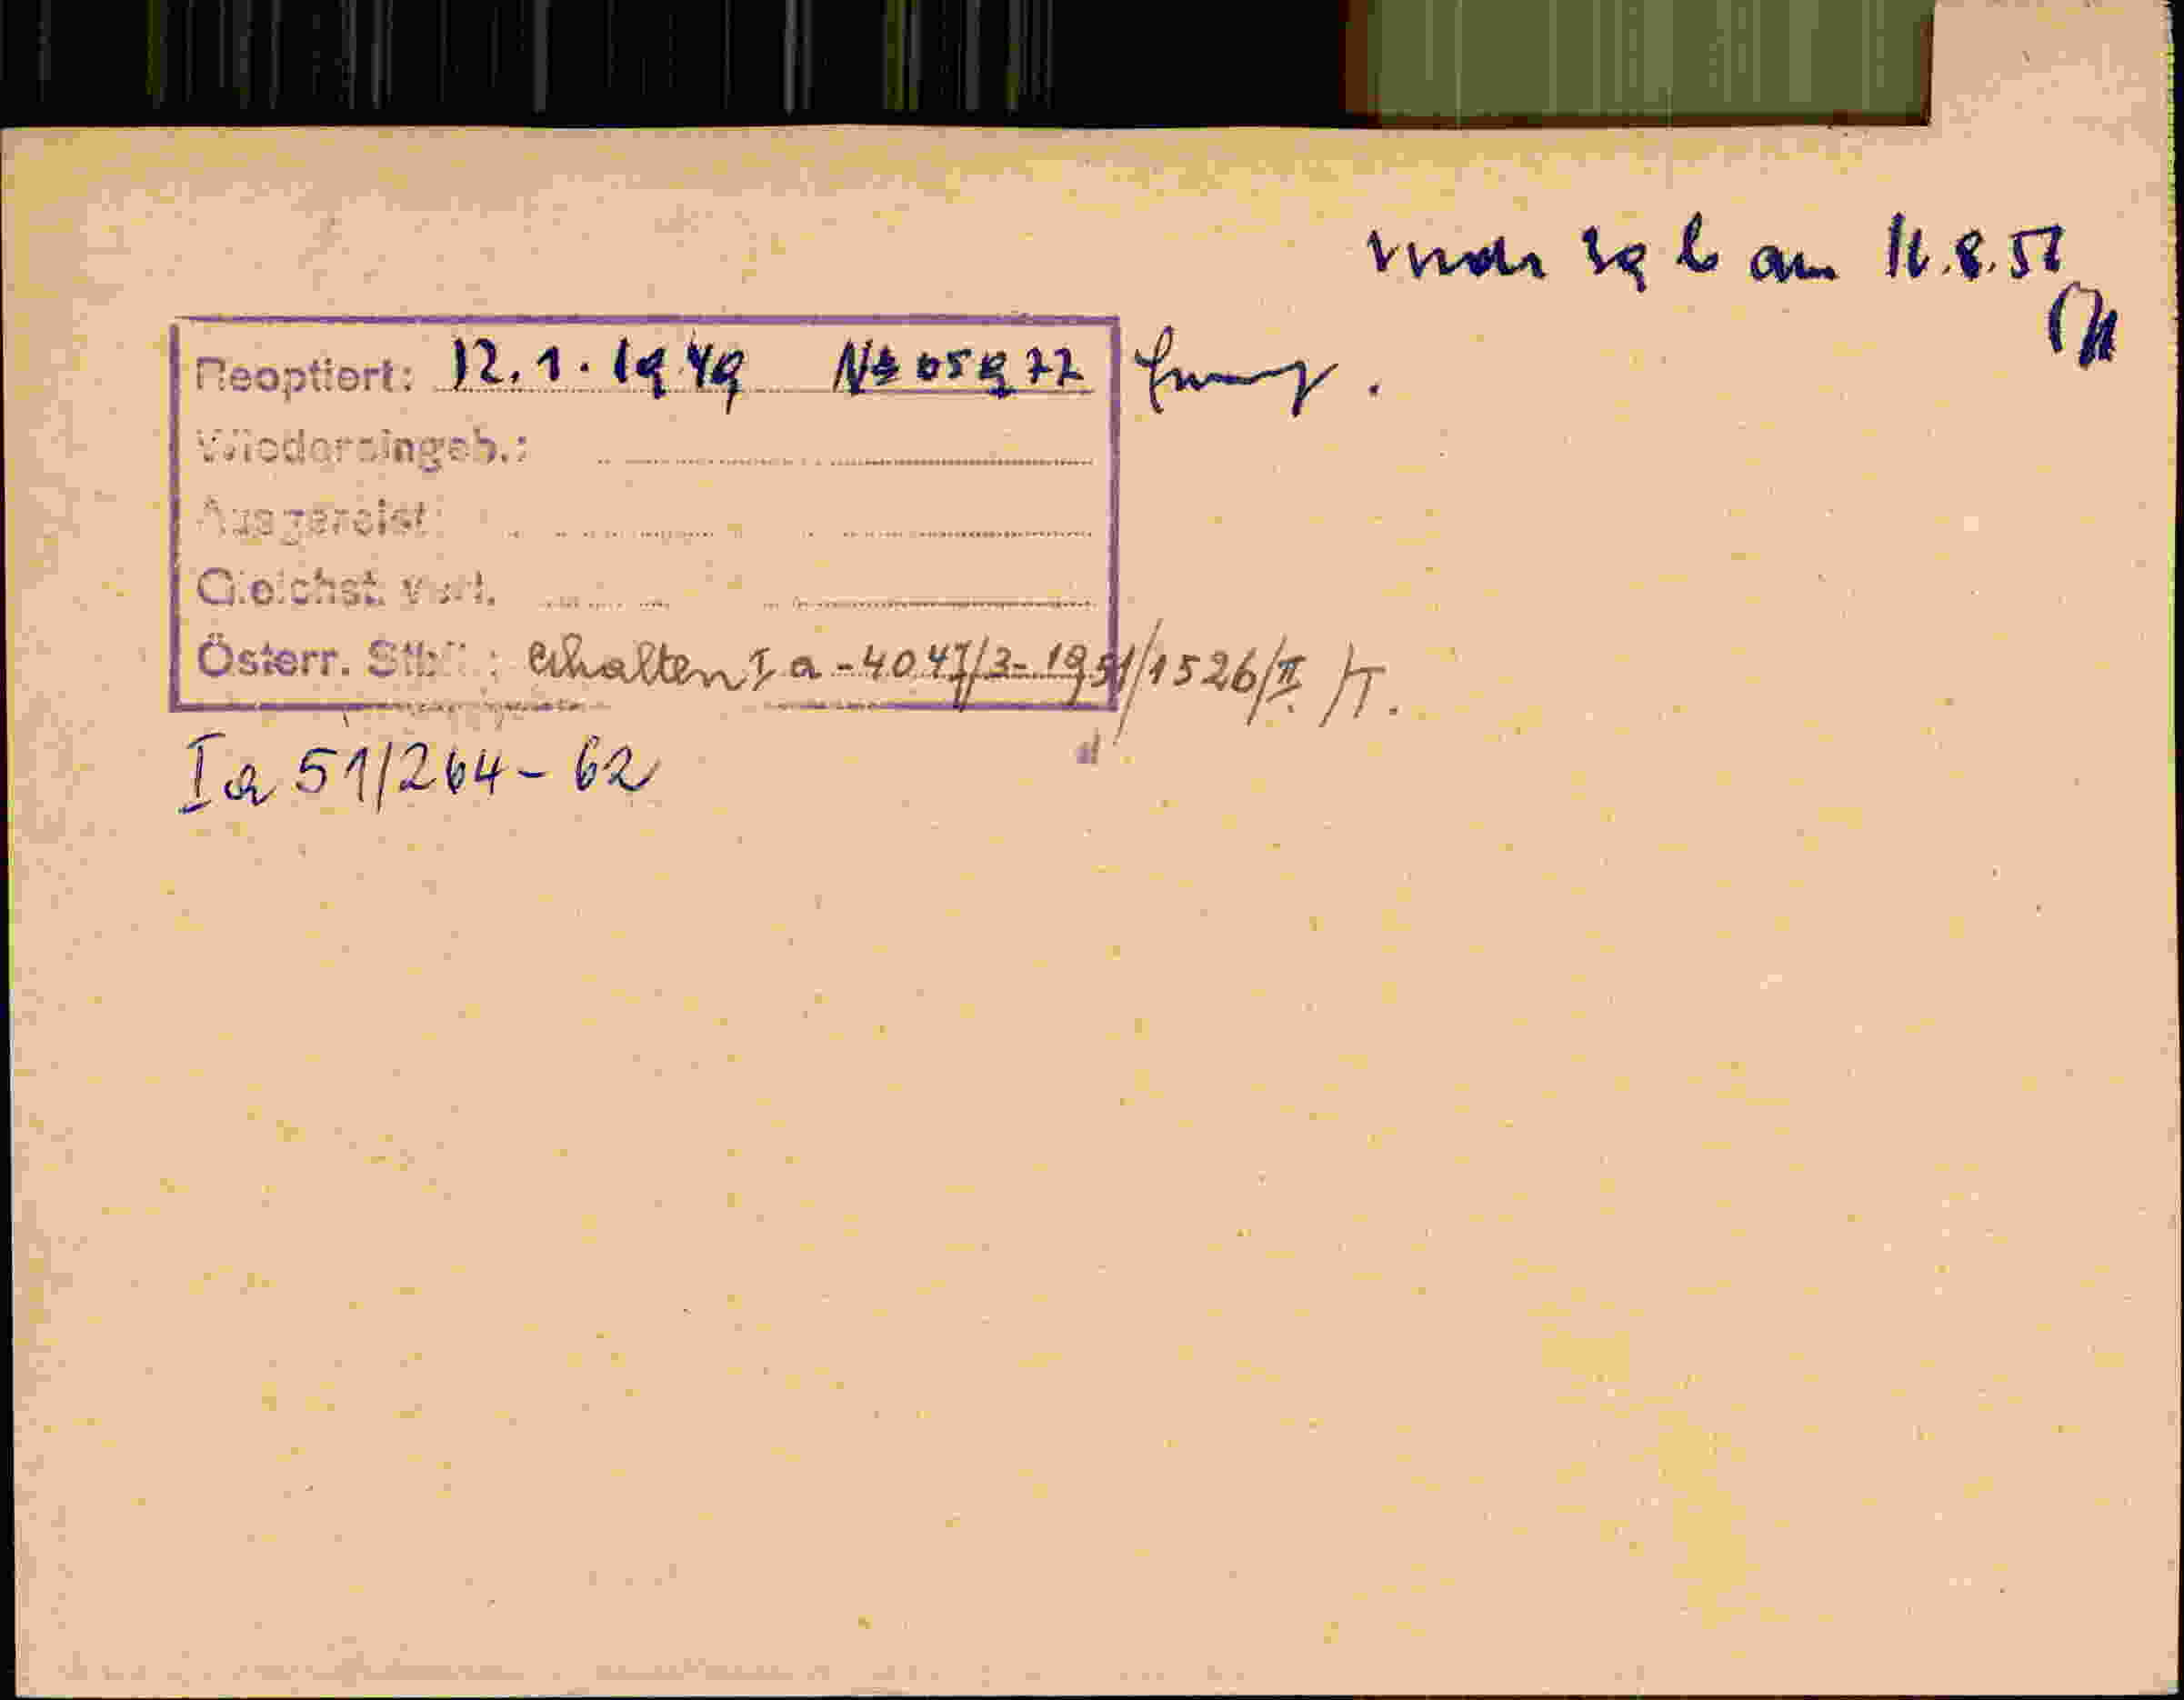 am 16.8.51
Reoptiert: 12.1.1949 № 05977
Wiedereingeb.:
Ausgereist:
Gleichst. verl.
Österr. Stb.: erhalten Ia-4047/3-1951/1526/II/T.
Ia 51/264-62